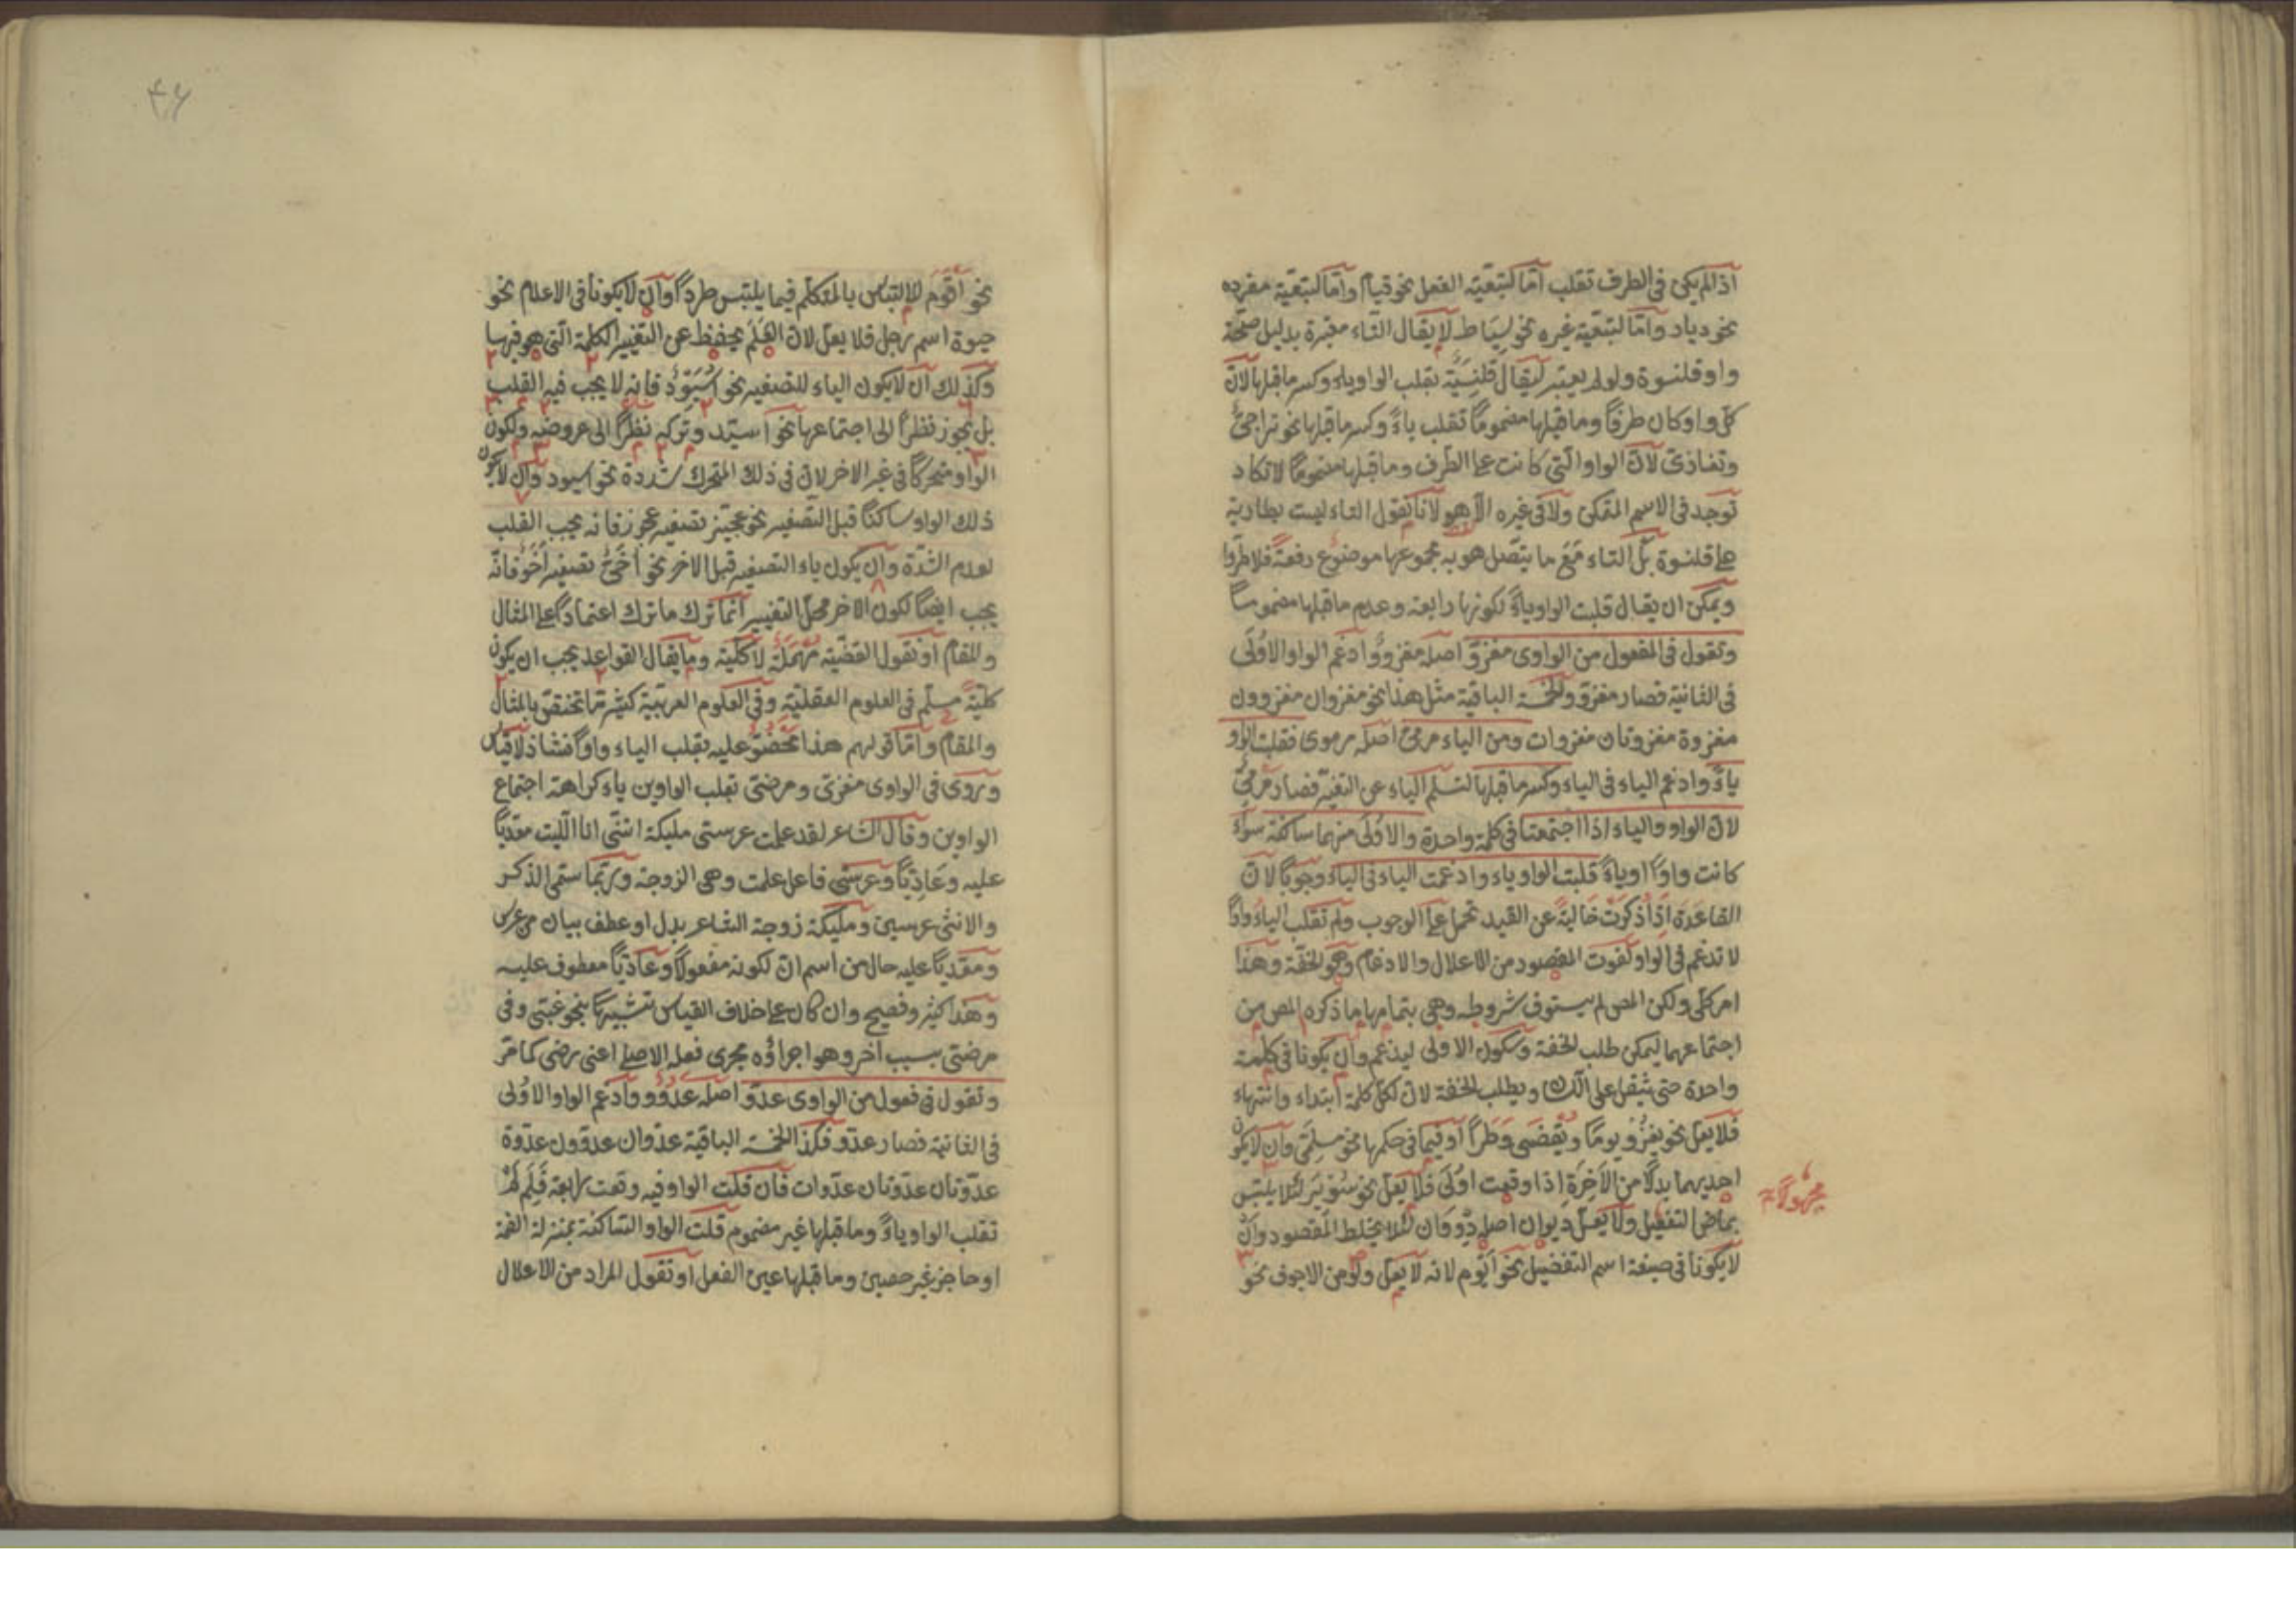 اذا لم يكن فى الطرف تقلب امّا لتبعيّة الفعل نحو قيام وامّا لتبعيّة مفرده
نحو دياد وامّا لتبعيّة غيره نحو سياط لا يقال التاء معتبرة بدليل صحّة
واو قلنسوة ولو لم يعتبر ليقال قلنسية بقلب الواو ياء وكسر ما قبلها لانّ
كل واو كان طرفاً وما قبلها مضموماً تقلب ياءً وكسر ما قبلها نحو تراجىّ
وتغازى لانّ الواو الّتى كانت على الطرف وما قبلها مضموماً لا تكاد
توجد فى الاسم المتمكن ولا فى غيره الّا هو لانا نقول التاء ليست بطارية
على قلنسوة بل التاء مَعَ ما يتّصل هو به مجموعها موضوع دفعةً
ويمكن ان يقال قلبت الواو ياءً لكونها رابعة وعدم ما قبلها مضموماً
وتقول فى المفعول من الواوى مغزوّ اصله مغزوو وادغم الواو الاُولَى
فى الثانية فصار مغزوّ والخمسة الباقية مثل هذا نحو مغزوان مغزوون
مغزوة مغزوتان مغزوات ومن الياء مرمىّ اصله مرموى فقلبت الواو
ياءً وادغم الياء فى الياء وكسر ما قبلها لتسلم الياء عن التغيّر فصار مرمىّ
لانّ الواو والياء اذا اجتمعتا فى كلمة واحدة والاُولَى منهما ساكنة سواء
كانت واوًا او ياءً قلبت الواو ياء وادغمت الياء فى الياء وجوبًا لانّ
القاعدة اذا ذكرت خاليةً عن القيد تحمل على الوجوب ولم تقلب الياءُ واوًا
لا تدغم فى الواو لفوت المقصود من الاعلال والادغام وهو الخفّة وهذا
امر كلّى ولكن المص لم يستوف شروطه وهى بتمامها ما ذكره المص من
اجتماعهما ليمكن طلب الخفة وسكون الاولى ليدغم وان يكونا فى كلمة
واحدة حتى تثقل على ويطلب الخفة لانّ لكلّ كلمة ابتداء وانتهاء
فلا يعلّ نحو يغزُو يومًا ويقضى وَطَراً او فيما فى حكمها نحو مسلمىّ وان لا يكون
احديهما بدلًا من الآخرة اذا وقعت اُولَى فلا يعلّ نحو سُوْيِرَ لئلا يلتبس
بماضى التفعيل ولا يعلّ ديوان اصله دِوّوَان لئلا يختلط المقصود وان
لا يكونا فى صيغة اسم التفضيل نحو اَيْوَم لانه لا يعلّ ولو من الاجوف نحو
مجهولاً
۴۶
نحو اَقْوَم للالتباس بالمتكلّم فيما يلتبس طرداً وان لا يكونا فى الاعلام نحو
حيوة اسم رجل فلا يعلّ لانّ العَلَم يحفظ عن التغيير الكلمة الّتى هو فيها
وكذلك ان لا يكون الياء للتصغير نحو اُسَيْوِد فانه لا يجب فيه القلب
بل يجوز نظراً الى اجتماعهما نحو اسيّد وتركه نظراً الى عروضه ولكون
الواو متحركاً فى غير الاخر لان فى ذلك المتحرك شدّة نحو اسيود وان لا يكون
ذلك الواو ساكنًا قبل التصغير نحو عجيّز تصغير عجوز فانه يجب القلب
لعدم الشدّة وان يكون ياء التصغير قبل الاخر نحو اُخَىّ تصغير اَخَو فانّه
يجب ايضًا لكون الاخر محلّ التغيير انّما ترك ما ترك اعتماداً على المثال
والمقام او نقول القضيّة مُهمَلَة لا كلّية وما يقال القواعد يجب ان يكون
كليّة مسلّم فى العلوم العقليّة وفى العلوم العربيّة كثيراً ما تختصّ بالمثال
والمقام وامّا قولهم هذا ممضوّ عليه بقلب الياء واوًا فشاذ لا قياس
وروى فى الواوى مغزىّ ومرضىّ بقلب الواوين ياء كراهة اجتماع
الواوين وقال الشاعر لقد علمت عرسى مليكة انّنى انا الليث معديّا
عليه وعَادِيًا وعرسى فاعل علمت وهى الزوجة وربّما سمّى الذكر
والانثى عرسين ومليكة زوجة الشاعر بدل او عطف بيان من عرس
ومعديًّا عليه حال من اسم انّ لكونه مفعولًا وعاديًا معطوف عليه
وهذا كثير وفصيح وان كان على خلاف القياس تشبيهًا بنحو عتىّ وفى
مرضىّ بسبب آخر وهو اجراؤه مجرى فعله الاصلى اعنى رضى كما مرّ
وتقول فى فعول من الواوى عدوّ اصله عَدُوْوٌ وادغم الواو الاُولى
فى الثانية فصار عدوّ وكذا الخمسة الباقية عدوّان عدوّون عدوّة
عدوّتان عدوّتان عدوّات فان قلت الواو فيه وقعت رابعة فَلِمَ لَمْ
تقلب الواو ياءً وما قبلها غير مضموم قلت الواو الساكنة بمنزلة الضمة
او حاجز غير حصين وما قبلها عين الفعل او نقول المراد من الاعلال